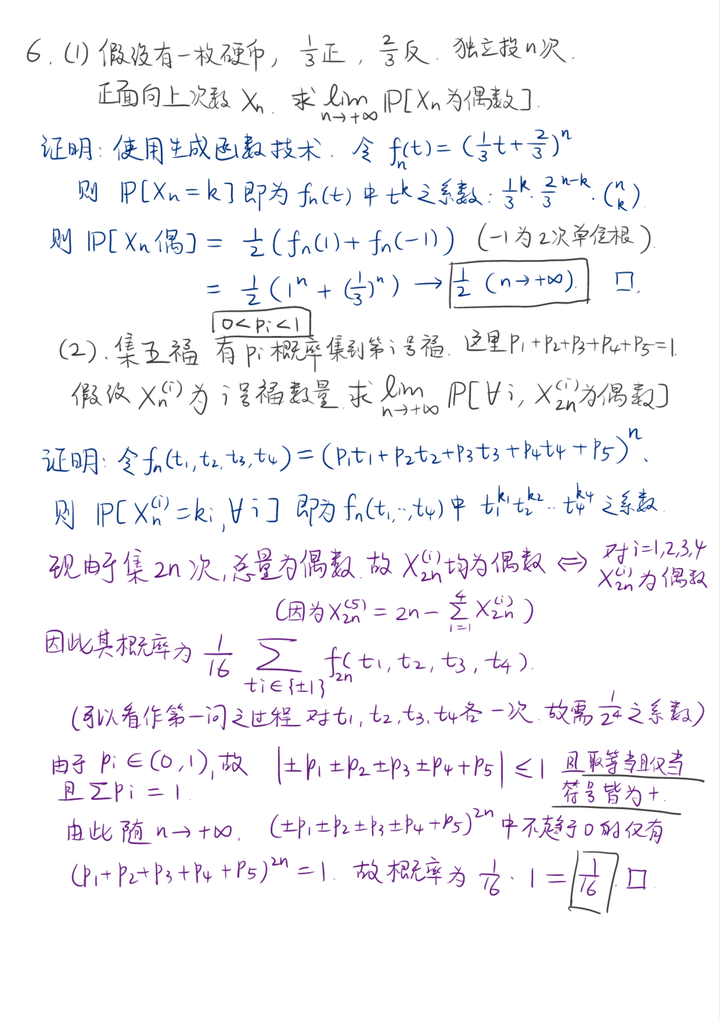 6. (1) 假设有一枚硬币, 1/3正, 2/3反. 独立投n次.
正面向上次数 Xₙ. 求 lim_{n→+∞} ℙ[Xₙ为偶数].
证明: 使用生成函数技术. 令 fₙ(t) = (1/3 t + 2/3)ⁿ
则 ℙ[Xₙ=k] 即为 fₙ(t) 中 tᵏ 之系数: 1/3^k · 2/3^{n-k} · (n k)
则 ℙ[Xₙ偶] = 1/2 (fₙ(1) + fₙ(-1)) (-1为2次单位根).
= 1/2 (1ⁿ + (1/3)ⁿ) → 1/2 (n→+∞). □.
0<pi<1
(2). 集五福 有 pi 概率集到第i号福. 这里 p₁+p₂+p₃+p₄+p₅=1.
假设 Xₙ^{(i)} 为 i号福数量. 求 lim_{n→+∞} ℙ[∀i, X_{2n}^{(i)}为偶数]
证明: 令 fₙ(t₁,t₂,t₃,t₄) = (p₁t₁+p₂t₂+p₃t₃+p₄t₄+p₅)ⁿ.
则 ℙ[Xₙ^{(i)}=ki, ∀i] 即为 fₙ(t₁,…,t₄) 中 t₁^{k₁} t₂^{k₂} … t₄^{k₄} 之系数.
现由于集2n次, 总量为偶数. 故 X_{2n}^{(i)} 均为偶数 ⇔ 对i=1,2,3,4 X_{2n}^{(i)}为偶数
(因为 X_{2n}^{(5)} = 2n - Σ_{i=1}^{4} X_{2n}^{(i)})
因此其概率为 1/16 Σ_{ti∈{±1}} f_{2n}(t₁, t₂, t₃, t₄).
(可以看作第一问之过程 对t₁, t₂, t₃, t₄各一次. 故需 1/2⁴ 之系数)
由于 pi∈(0,1), 故 |±p₁±p₂±p₃±p₄+p₅| ≤ 1 且取等当且仅当
且 Σpi = 1 符号皆为+.
由此随 n→+∞, (±p₁±p₂±p₃±p₄+p₅)^{2n} 中不趋于0的仅有
(p₁+p₂+p₃+p₄+p₅)^{2n} = 1. 故概率为 1/16 · 1 = 1/16. □.